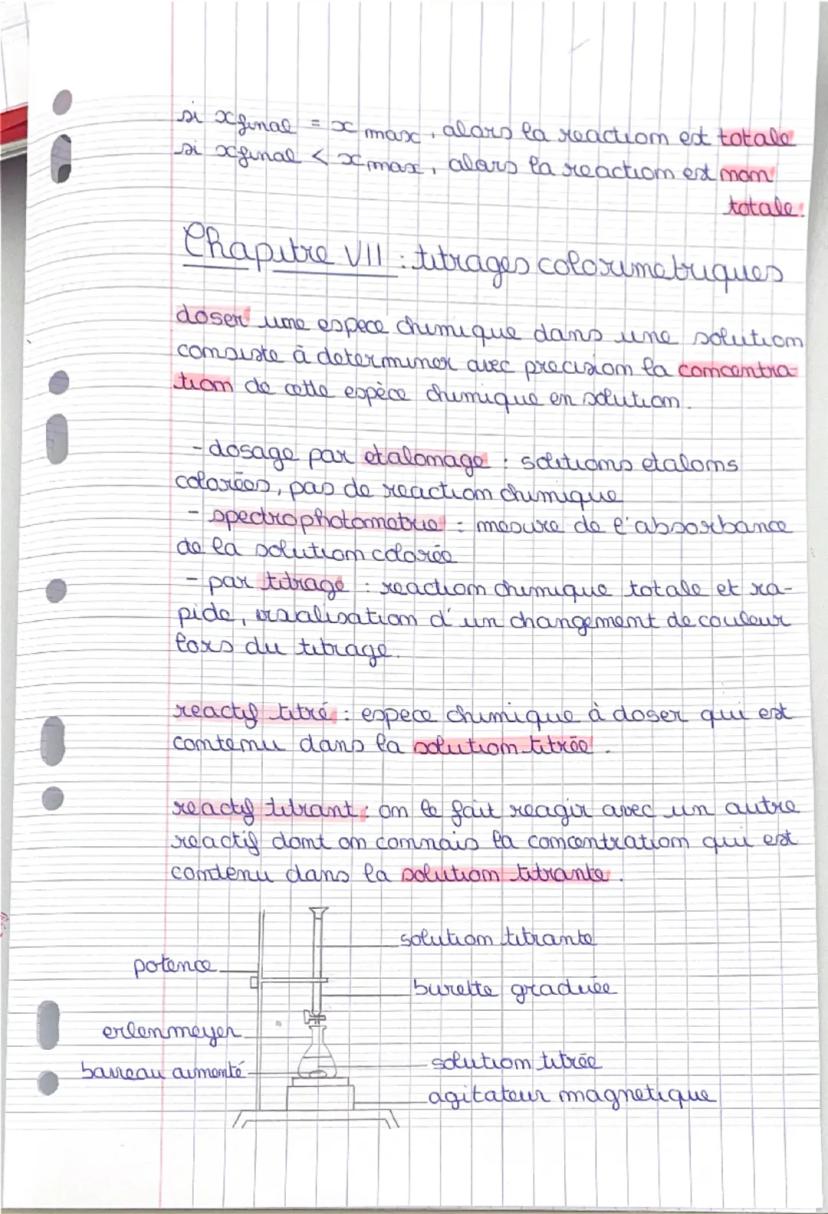 si xfinal = x max, alors la reaction est totale
si xfinal < xmax, alors la reaction est non
totale.
Chapitre VII : titrages colorimetriques
doser une espece chimique dans une solution
consiste à determiner avec precision la concentra-
tion de cette espèce chimique en solution.
- dosage par etalonage : solutions etalons
colorées, pas de reaction chimique
- spectrophotometrie : mesure de l'absorbance
de la solution colorée
- par titrage : reaction chimique totale et ra-
pide, visualisation d'un changement de couleur
lors du titrage.
reactif titré : espece chimique à doser qui est
contenu dans la solution titrée.
reactif titrant : on le fait reagir avec un autre
reactif dont on connais la concentration qui est
contenu dans la solution titrante.
solution titrante
potence
burette graduée
erlenmeyer
solution titrée
barreau aimanté
agitateur magnetique